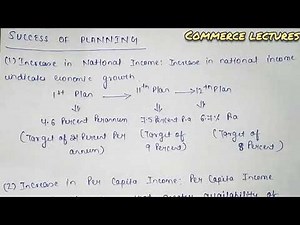 COMMERCE LECTURES
SUCCESS OF PLANNING
(1) Increase in National Income: Increase in national income
indicates economic growth
1st Plan → 11th Plan → 12th Plan
4.6 Percent Perannum 7.5 Percent P.a 6.7% P.a
(Target of 2.1 Percent Per (Target of (Target of
annum) 9 Percent) 8 Percent)
(2) Increase in Per Capita Income: Per Capita Income
availability of